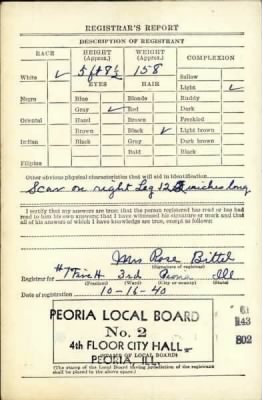 REGISTRAR'S REPORT
DESCRIPTION OF REGISTRANT
RACE HEIGHT (Approx.) WEIGHT (Approx.) COMPLEXION
White ✓ 5 ft 8 ½ 158 Sallow
EYES HAIR Light ✓
Negro Blue Blonde Ruddy
Gray ✓ Red Dark
Oriental Hazel Brown Freckled
Brown Black ✓ Light brown
Indian Black Gray Dark brown
Bald Black
Filipino
Other obvious physical characteristics that will aid in identification
Scar on right Leg 12 inches long
I certify that my answers are true; that the person registered has read or has had
read to him his own answers; that I have witnessed his signature or mark and that
all of his answers of which I have knowledge are true, except as follows:
Mrs Rose Bittel
(Signature of registrar)
Registrar for 3rd Peoria Ill
(Precinct) (Ward) (City or county) (State)
Date of registration 10-16-40
PEORIA LOCAL BOARD
No. 2
4th FLOOR CITY HALL
PEORIA, ILL.
(STAMP OF LOCAL BOARD)
(The stamp of the Local Board having jurisdiction of the registrant
shall be placed in the above space.)
61
143
802